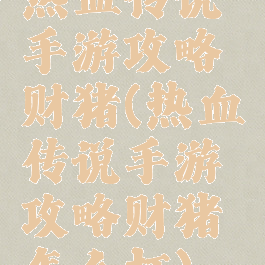 热血传说
手游攻略
财猪(热血
传说手游
攻略财猪
怎么打)